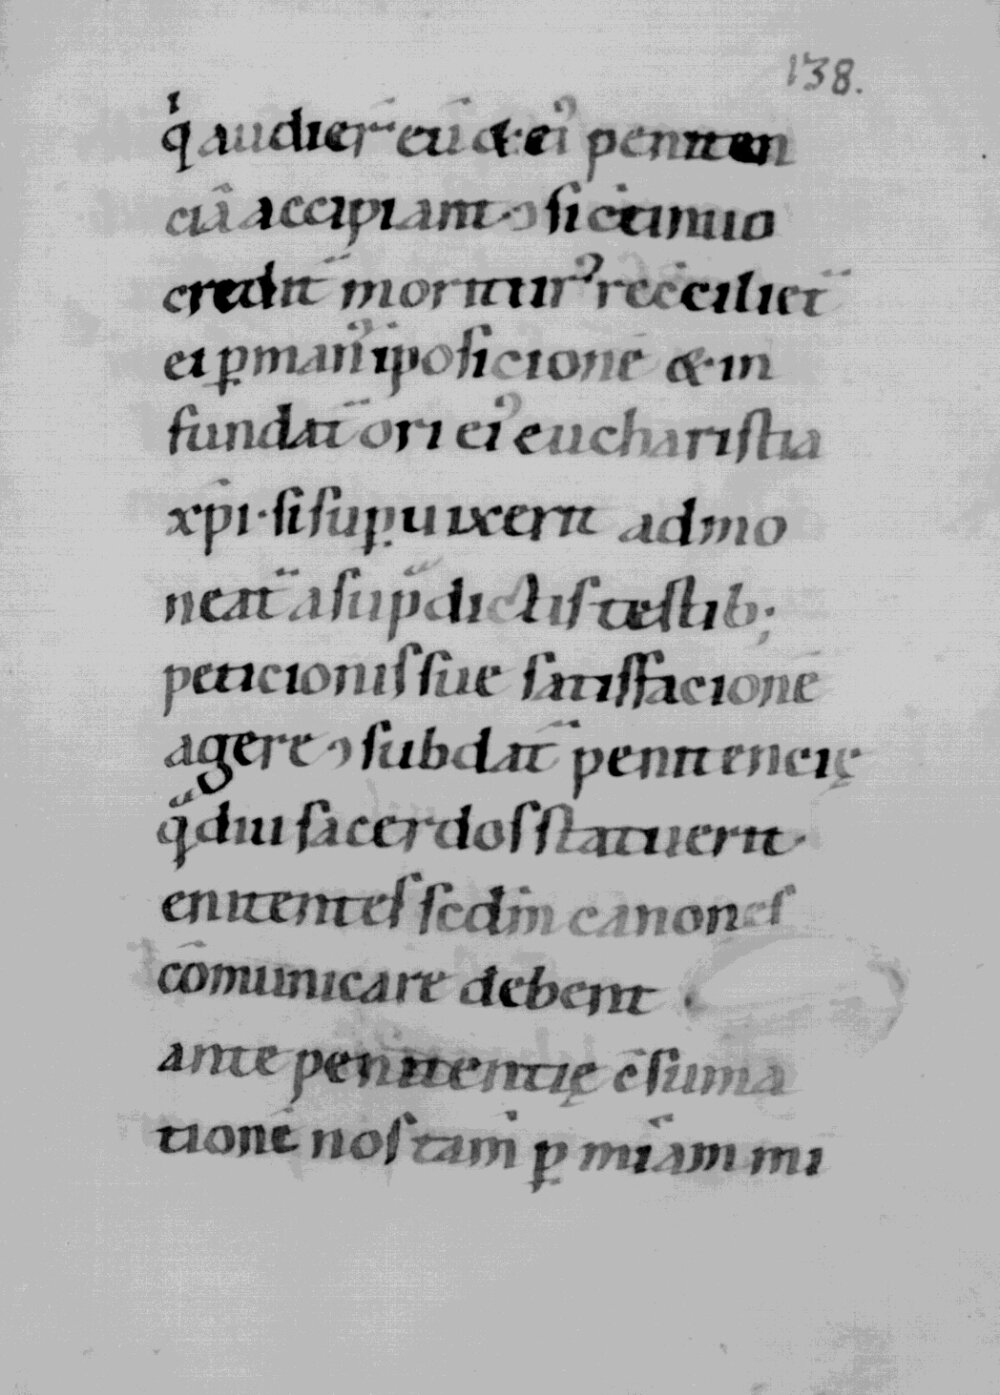 138.
qͥ audier̄ eū & eiꝰ peniten
ciā accipiant ⁊ si cōtinuo
credit̄ moriturꝰ rec̄ciliet̄
ei ꝑ manꝰ īposicionē & in
fundat̄ ori eiꝰ eucharistia
xp̄i· si suꝑuixerit admo
neat̄ a sup̄dictis testib;
peticioni sue satisfacionē
agere ⁊ subdat̄ penitencię
qͣdiu sacerdos statuerit·
enitentes scd̄m canones
cōmunicare debent
ante penitentię c̄suma
tionē nos tam̄ ꝑ mīam mi